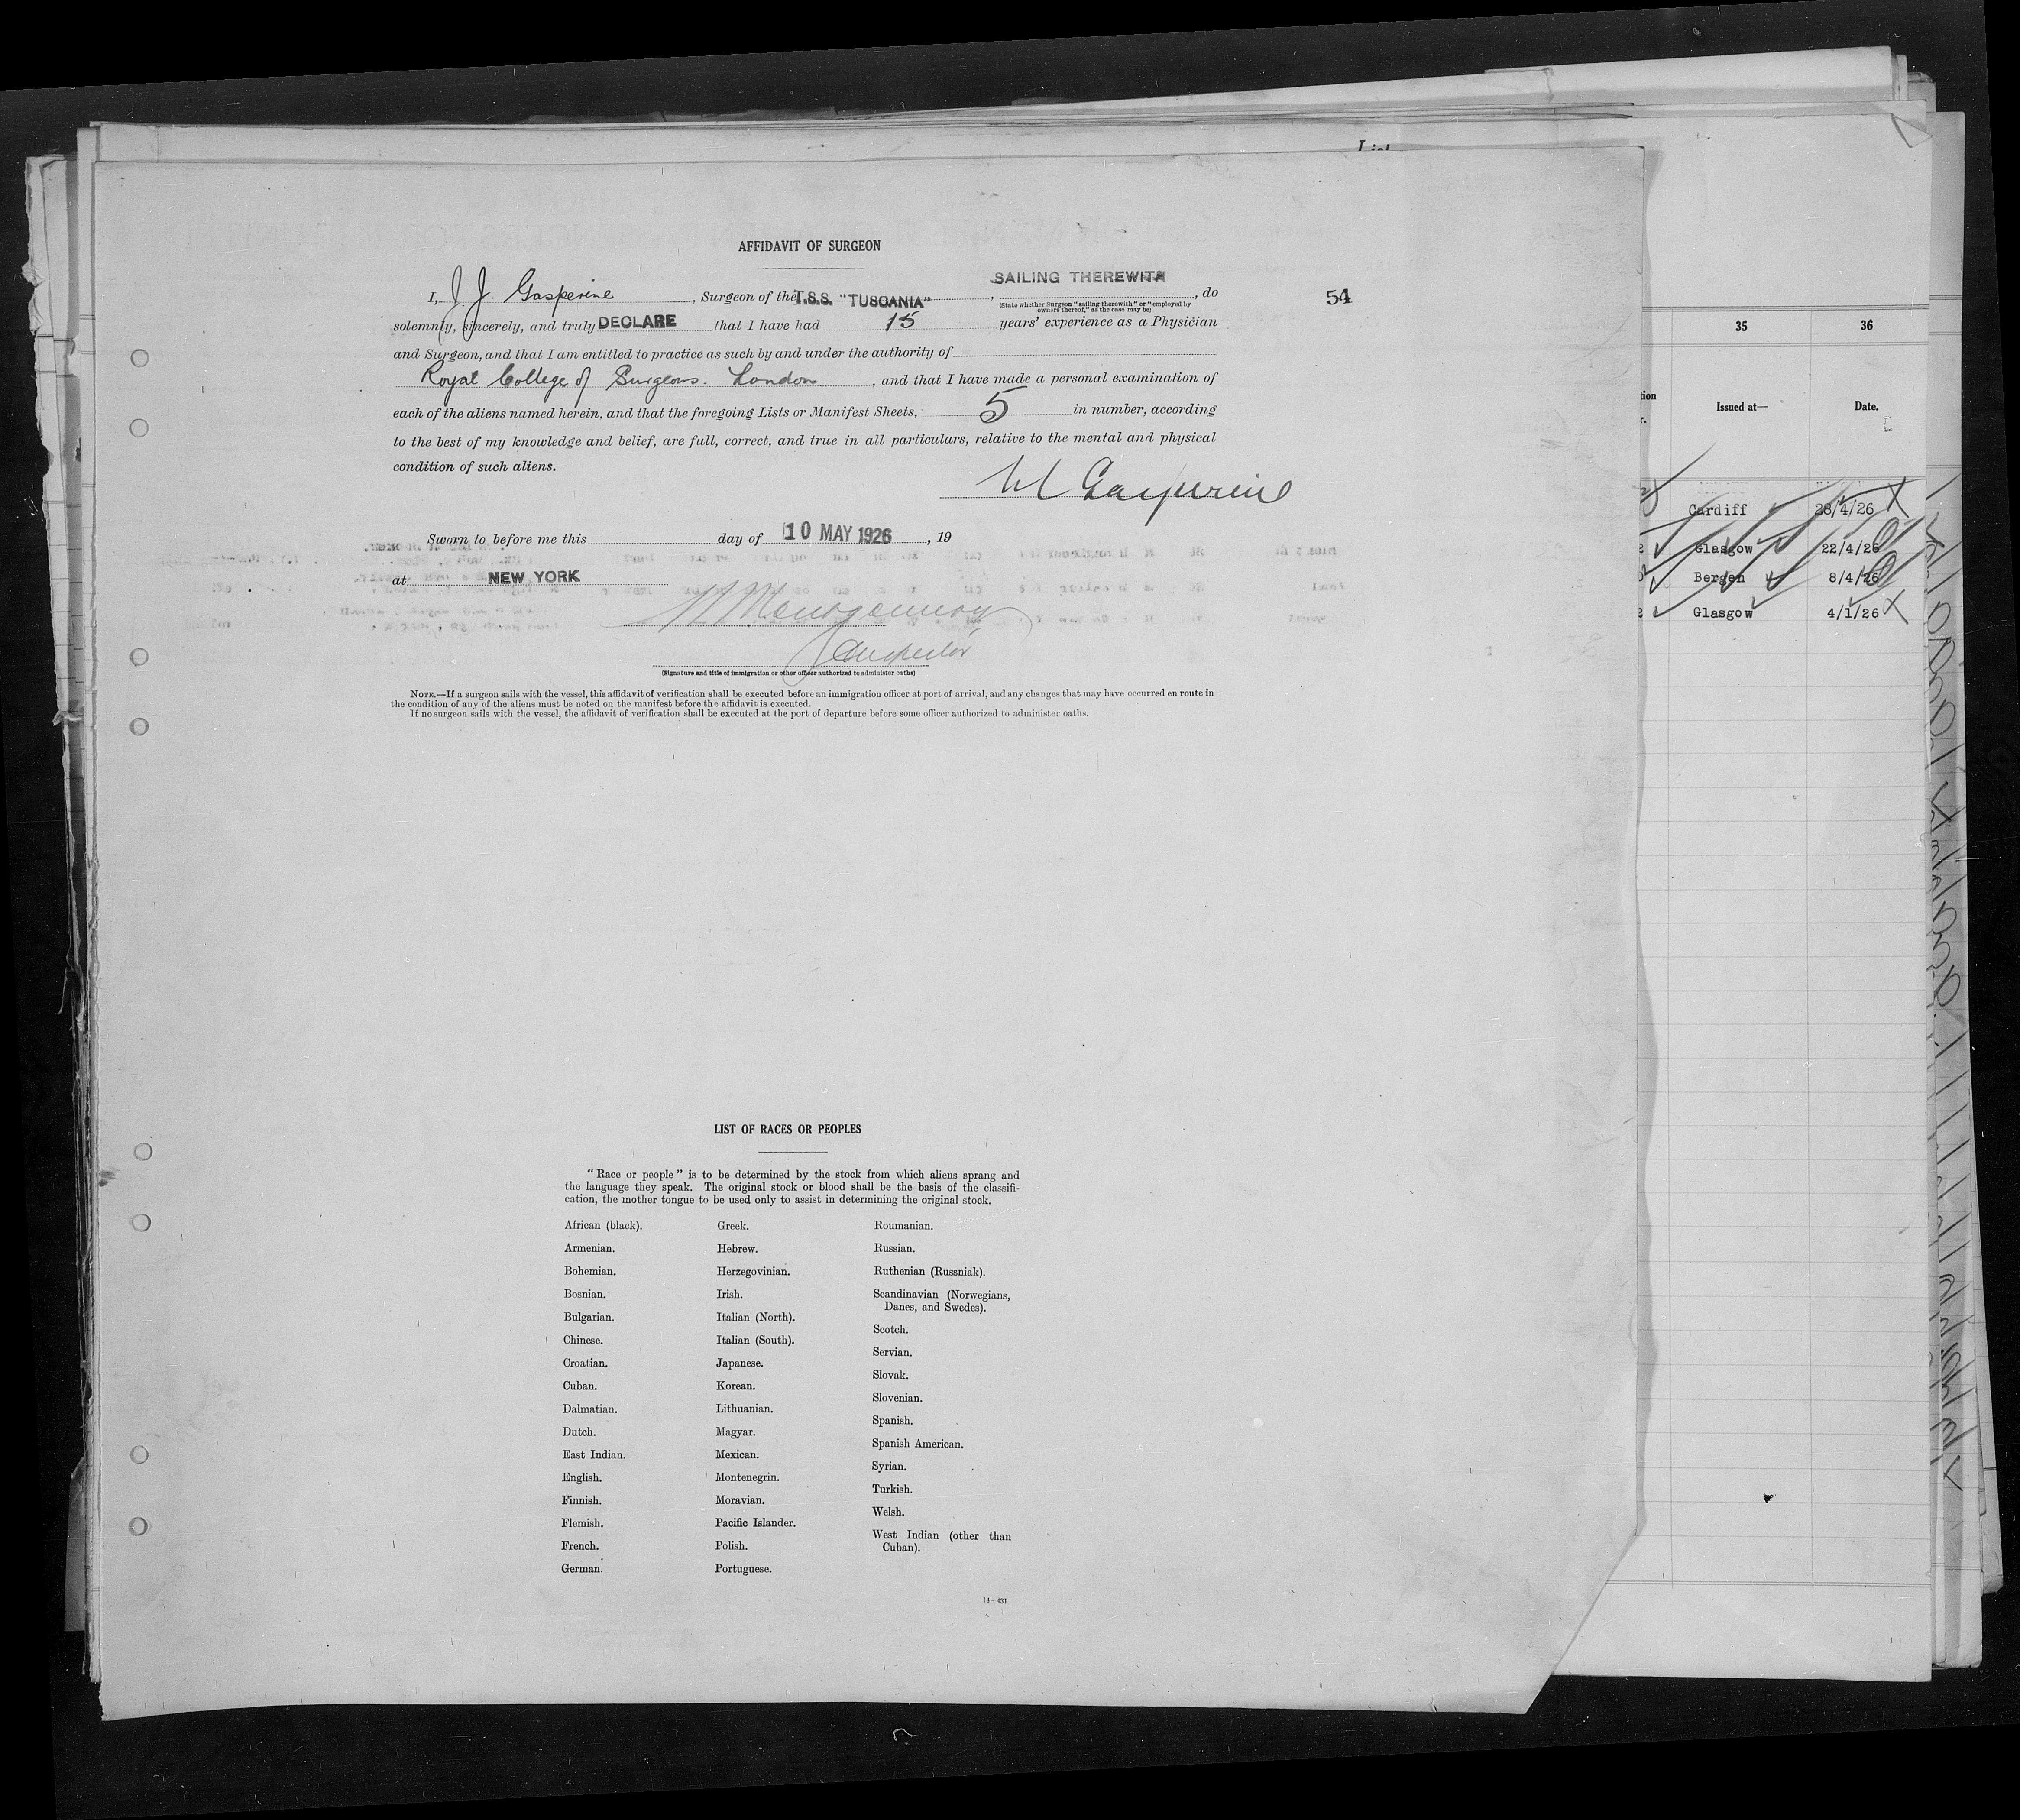 AFFIDAVIT OF SURGEON
SAILING THEREWITH
I, J. J. Gasperine, Surgeon of the T.S.S. "TUSCANIA", do
(State whether Surgeon "sailing therewith" or "employed by
owners thereof," as the case may be)
54
solemnly, sincerely, and truly DECLARE that I have had 15 years' experience as a Physician
and Surgeon, and that I am entitled to practice as such by and under the authority of
Royal College of Surgeons. London, and that I have made a personal examination of
each of the aliens named herein, and that the foregoing Lists or Manifest Sheets, 5 in number, according
to the best of my knowledge and belief, are full, correct, and true in all particulars, relative to the mental and physical
condition of such aliens.
Gasperine
Sworn to before me this day of 10 MAY 1926, 19
at NEW YORK
Montgomery
Inspector
(Signature and title of immigration or other officer authorized to administer oaths)
NOTE.—If a surgeon sails with the vessel, this affidavit of verification shall be executed before an immigration officer at port of arrival, and any changes that may have occurred en route in
the condition of any of the aliens must be noted on the manifest before the affidavit is executed.
If no surgeon sails with the vessel, the affidavit of verification shall be executed at the port of departure before some officer authorized to administer oaths.
LIST OF RACES OR PEOPLES
"Race or people" is to be determined by the stock from which aliens sprang and
the language they speak. The original stock or blood shall be the basis of the classifi-
cation, the mother tongue to be used only to assist in determining the original stock.
African (black).
Armenian.
Bohemian.
Bosnian.
Bulgarian.
Chinese.
Croatian.
Cuban.
Dalmatian.
Dutch.
East Indian.
English.
Finnish.
Flemish.
French.
German.
Greek.
Hebrew.
Herzegovinian.
Irish.
Italian (North).
Italian (South).
Japanese.
Korean.
Lithuanian.
Magyar.
Mexican.
Montenegrin.
Moravian.
Pacific Islander.
Polish.
Portuguese.
Roumanian.
Russian.
Ruthenian (Russniak).
Scandinavian (Norwegians,
Danes, and Swedes).
Scotch.
Servian.
Slovak.
Slovenian.
Spanish.
Spanish American.
Syrian.
Turkish.
Welsh.
West Indian (other than
Cuban).
14—431
35 36
Issued at— Date.
Cardiff 28/4/26
Glasgow 22/4/26
Bergen 8/4/26
Glasgow 4/1/26